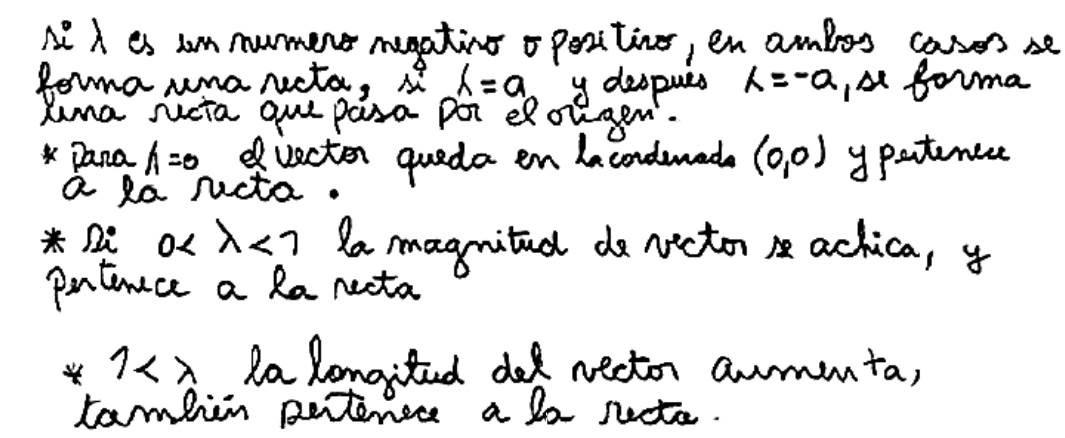 si λ es un numero negativo o positivo, en ambos casos se
forma una recta, si λ=a y después λ=-a, se forma
una recta que pasa por el origen.
* para λ=0 el vector queda en la cordenada (0,0) y pertenece
a la recta.
* Si 0<λ<1 la magnitud de vector se achica, y
pertenece a la recta
* 1<λ la longitud del vector aumenta,
también pertenece a la recta.